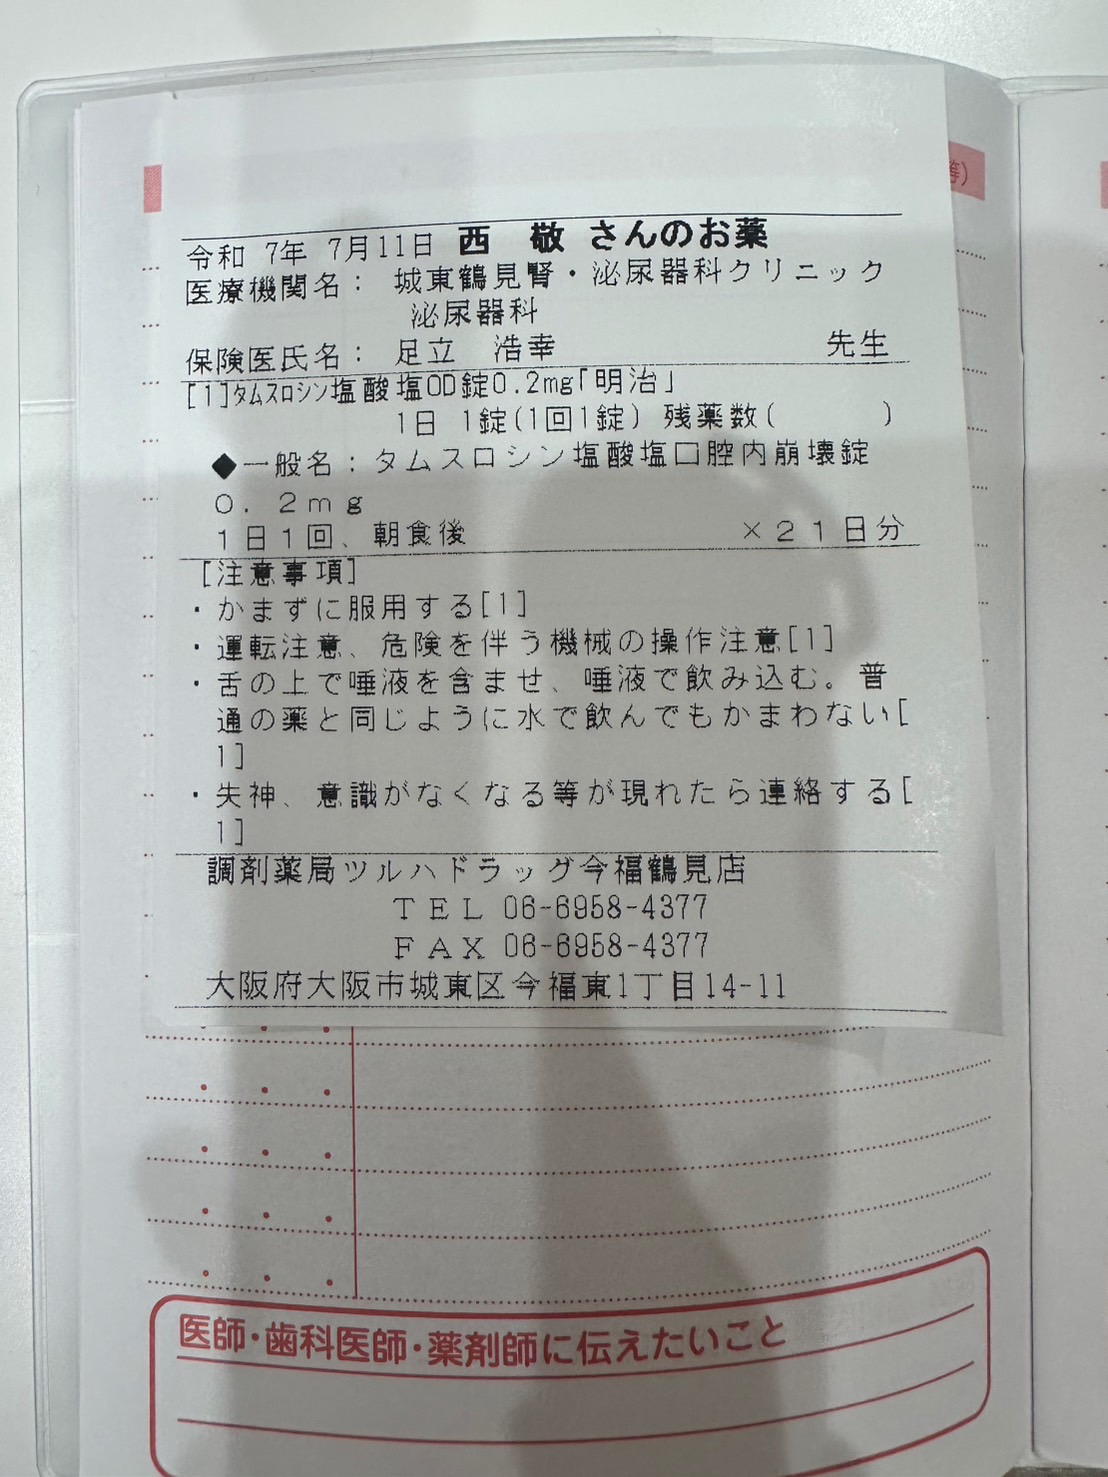 等)
令和 7年 7月11日 西 敬 さんのお薬
医療機関名： 城東鶴見腎・泌尿器科クリニック
泌尿器科
保険医氏名： 足立 浩幸 先生
[1]タムスロシン塩酸塩OD錠0.2mg「明治」
1日 1錠(1回1錠) 残薬数( )
◆一般名：タムスロシン塩酸塩口腔内崩壊錠
0．2mg
1日1回、朝食後 ×21日分
[注意事項]
・かまずに服用する[1]
・運転注意、危険を伴う機械の操作注意[1]
・舌の上で唾液を含ませ、唾液で飲み込む。普
通の薬と同じように水で飲んでもかまわない[
1]
・失神、意識がなくなる等が現れたら連絡する[
1]
調剤薬局ツルハドラッグ今福鶴見店
TEL 06-6958-4377
FAX 06-6958-4377
大阪府大阪市城東区今福東1丁目14-11
医師・歯科医師・薬剤師に伝えたいこと